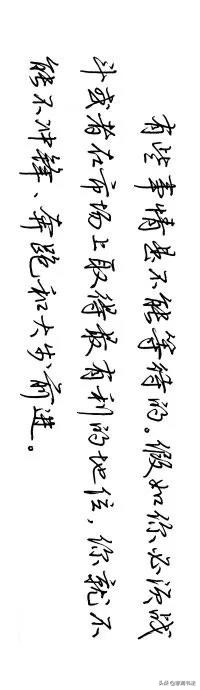 有些事情是不能等待的。假如你必须战
斗或者在市场上取得最有利的地位，你就不
能不冲锋、奔跑和大步前进。